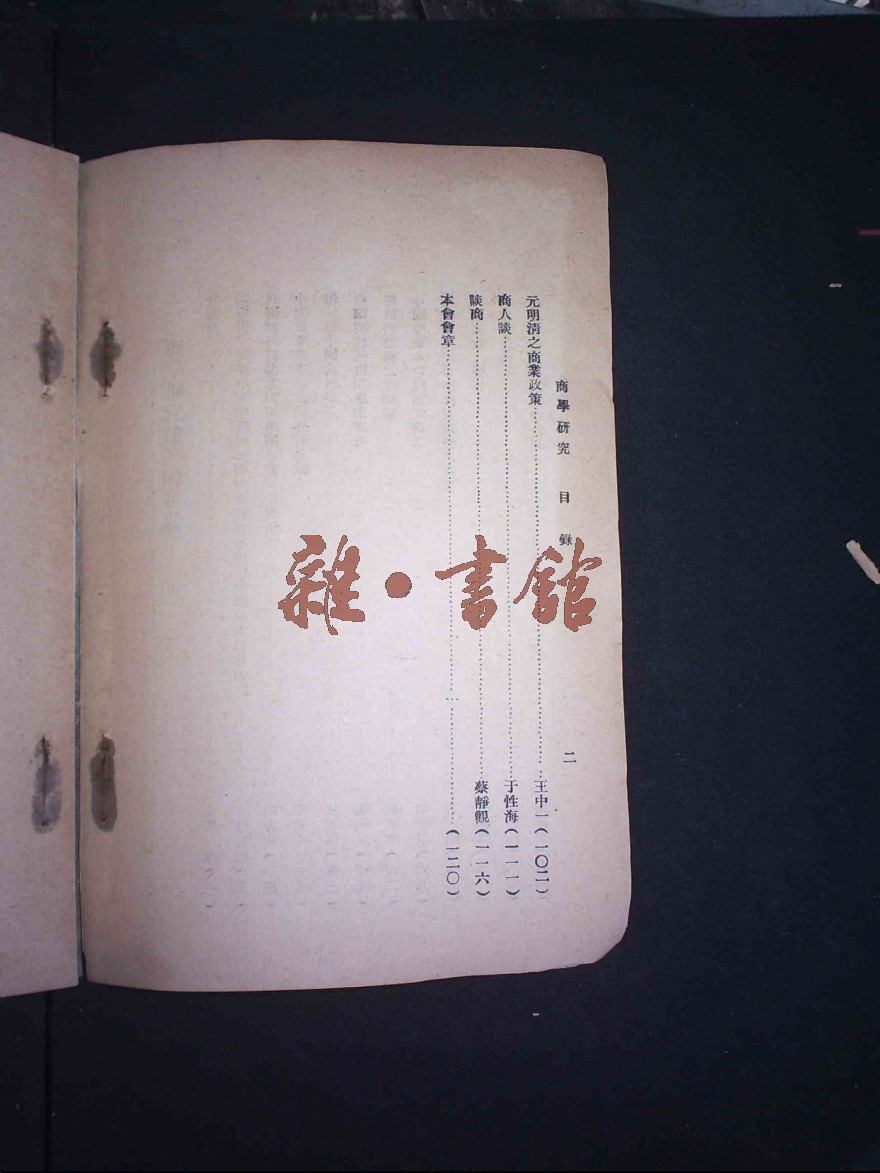 商學研究 目錄 二
元明清之商業政策……王中一(一〇二)
商人談……于性海(一一一)
談商……蔡靜觀(一一六)
本會會章……(一二〇)
雜·書館